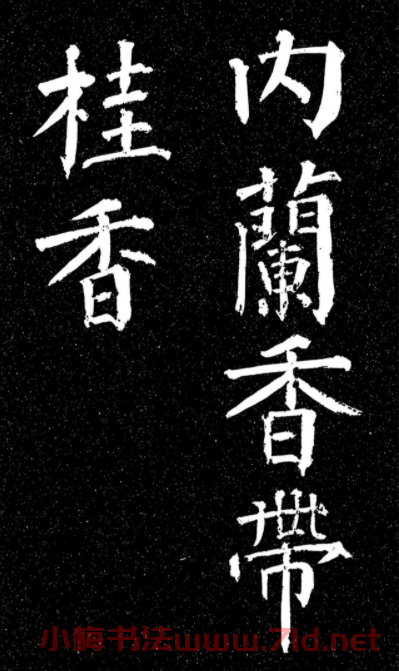 内蘭香帶
桂香
小梅书法www.71d.net